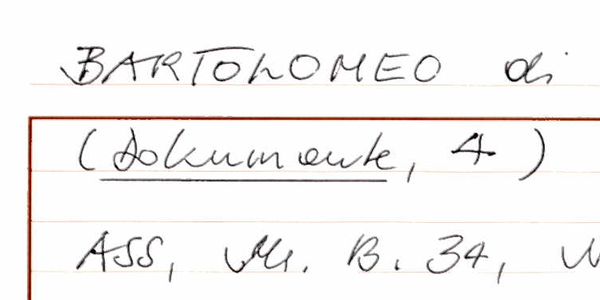 BARTOLOMEO di
(Dokumente, 4)
ASS, Ms. B. 34,